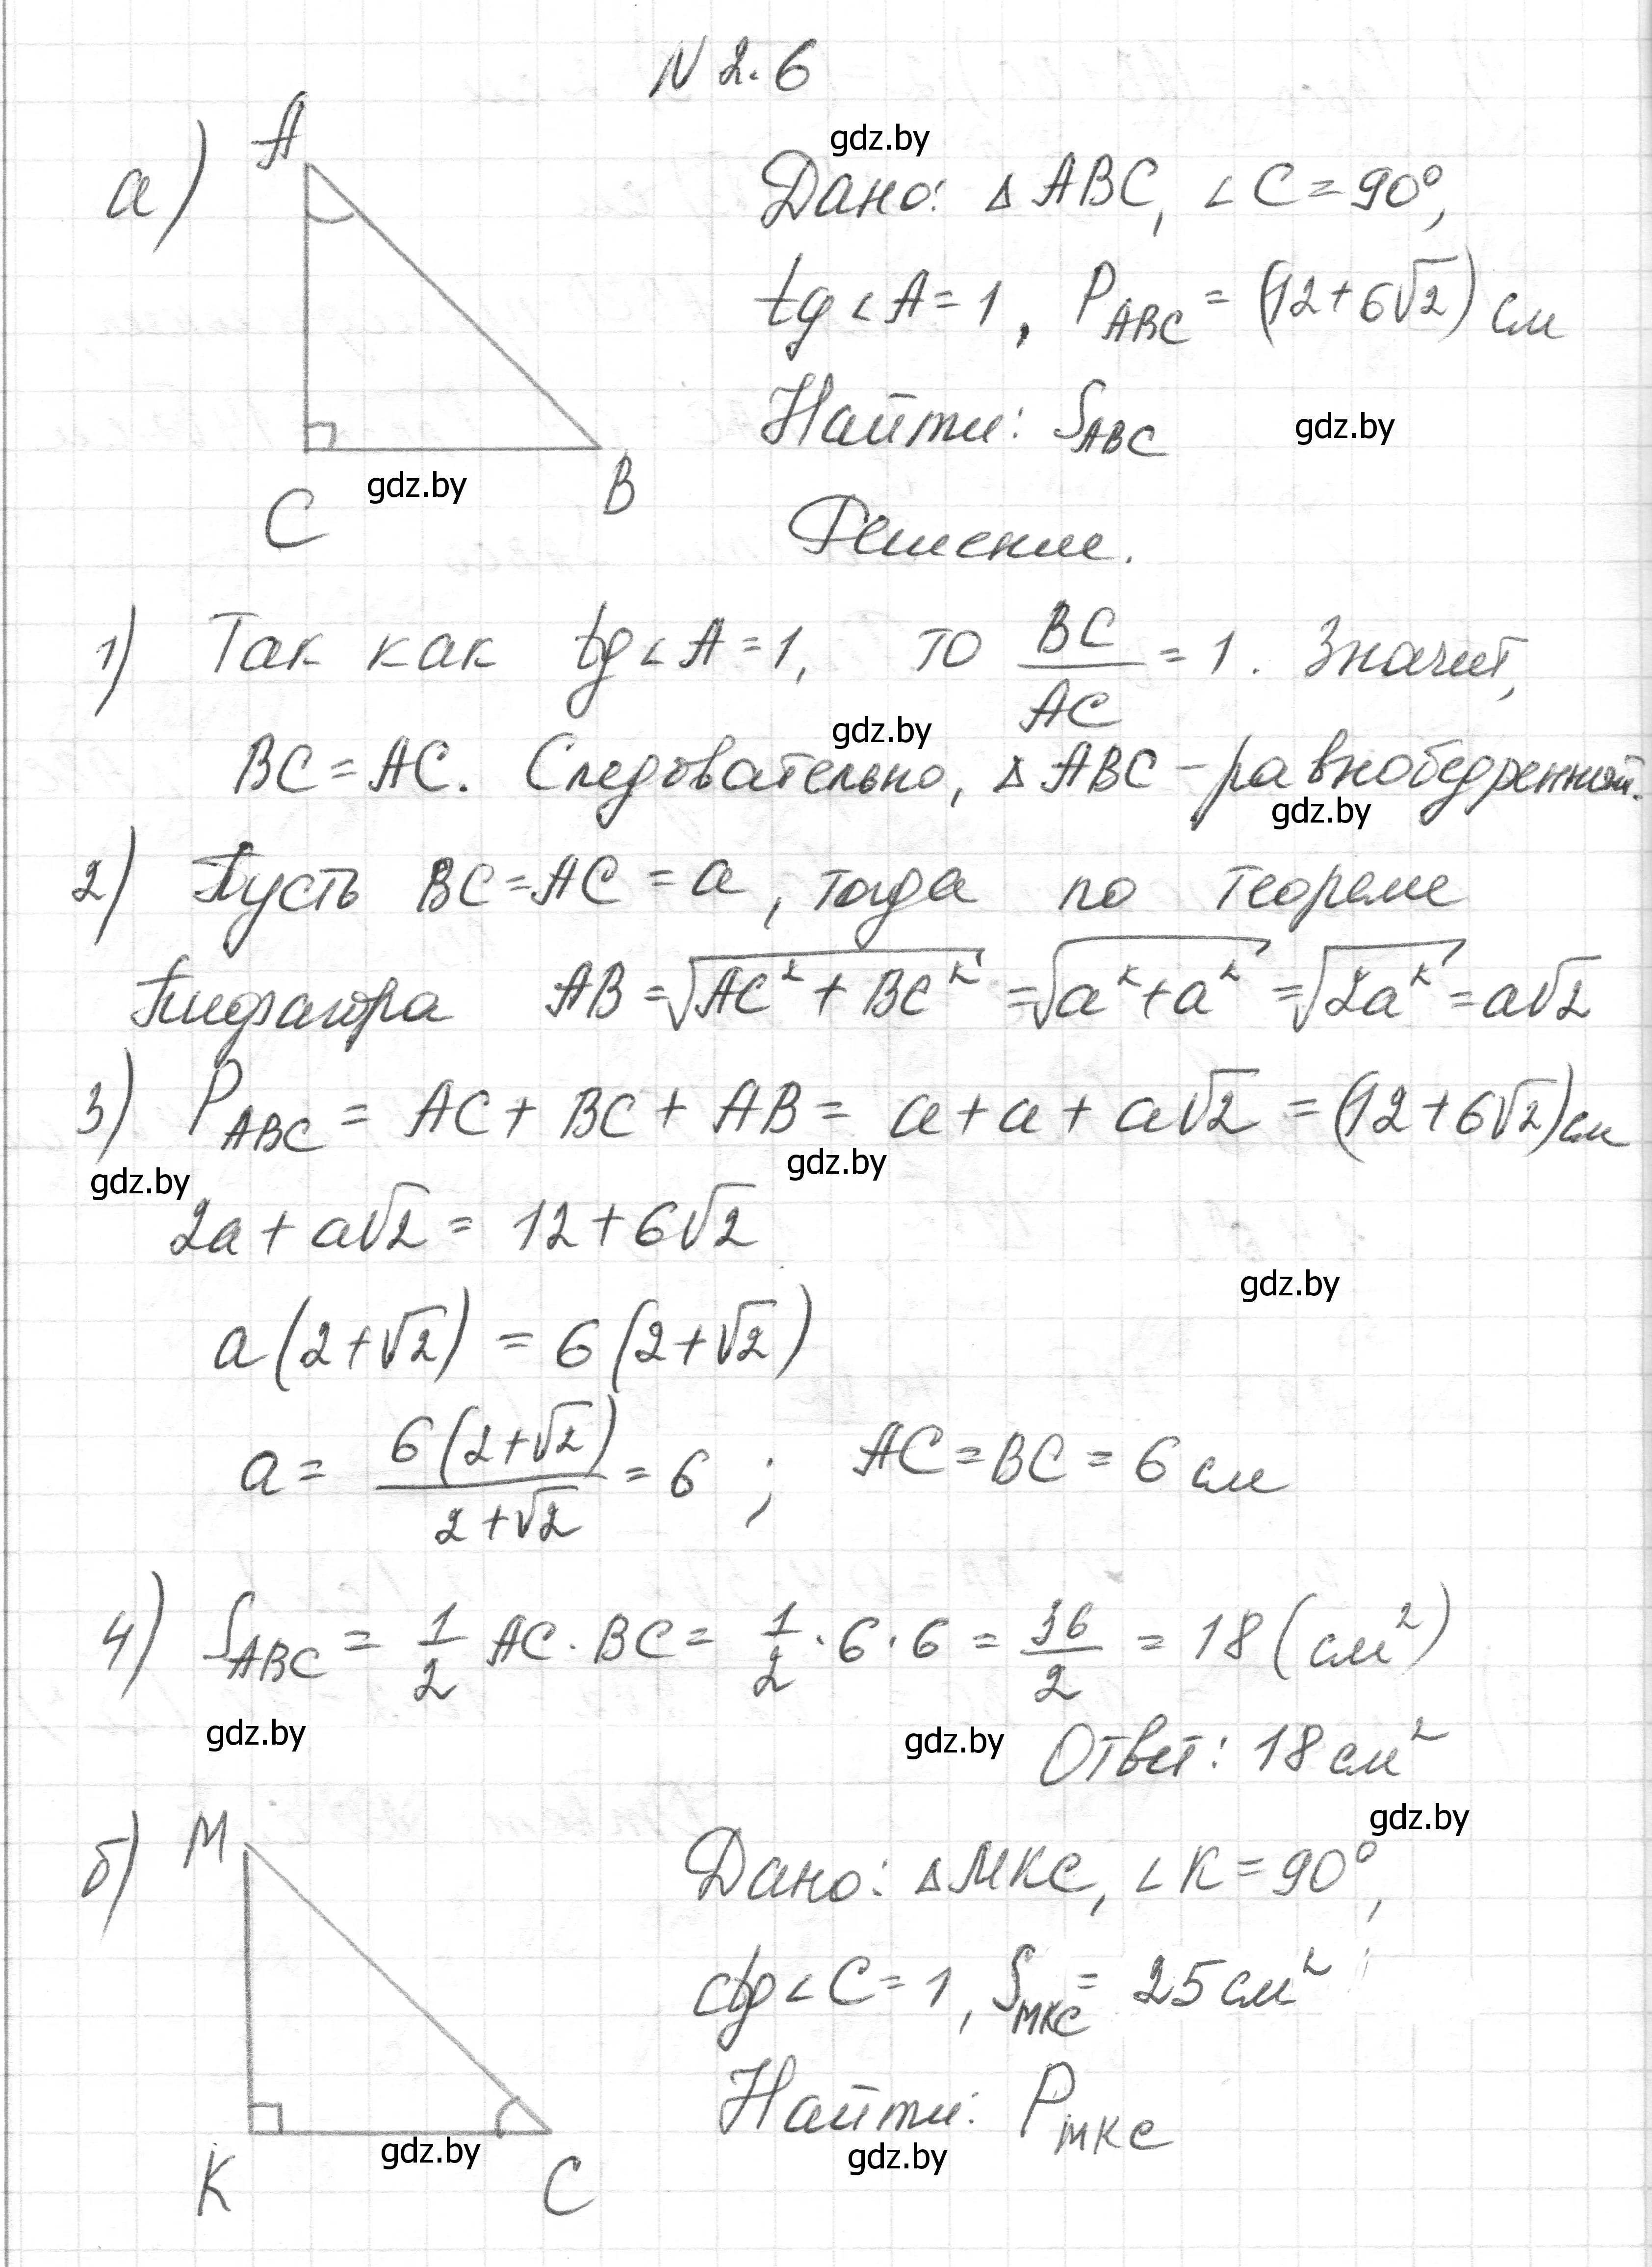 N 2.6
gdz.by
а)
A
C
B
gdz.by
Дано: △ ABC, ∠C = 90°,
tg∠A = 1, P_ABC = (12+6√2) см
Найти: S_ABC
gdz.by
Решение.
1) Так как tg∠A = 1, то BC/AC = 1. Значит,
gdz.by
BC = AC. Следовательно, △ ABC - равнобедренный.
gdz.by
2) Пусть BC = AC = a, тогда по теореме
Пифагора AB = √(AC² + BC²) = √(a² + a²) = √(2a²) = a√2
3) P_ABC = AC + BC + AB = a + a + a√2 = (12+6√2) см
gdz.by
gdz.by
2a + a√2 = 12 + 6√2
gdz.by
a(2+√2) = 6(2+√2)
a = 6(2+√2)/(2+√2) = 6 ; AC = BC = 6 см
4) S_ABC = 1/2 AC · BC = 1/2 · 6 · 6 = 36/2 = 18 (см²)
gdz.by
gdz.by
Ответ: 18 см²
gdz.by
б)
M
K
C
gdz.by
Дано: △MKC, ∠K = 90°,
ctg∠C = 1, S_MKC = 25 см²
Найти: P_MKC
gdz.by